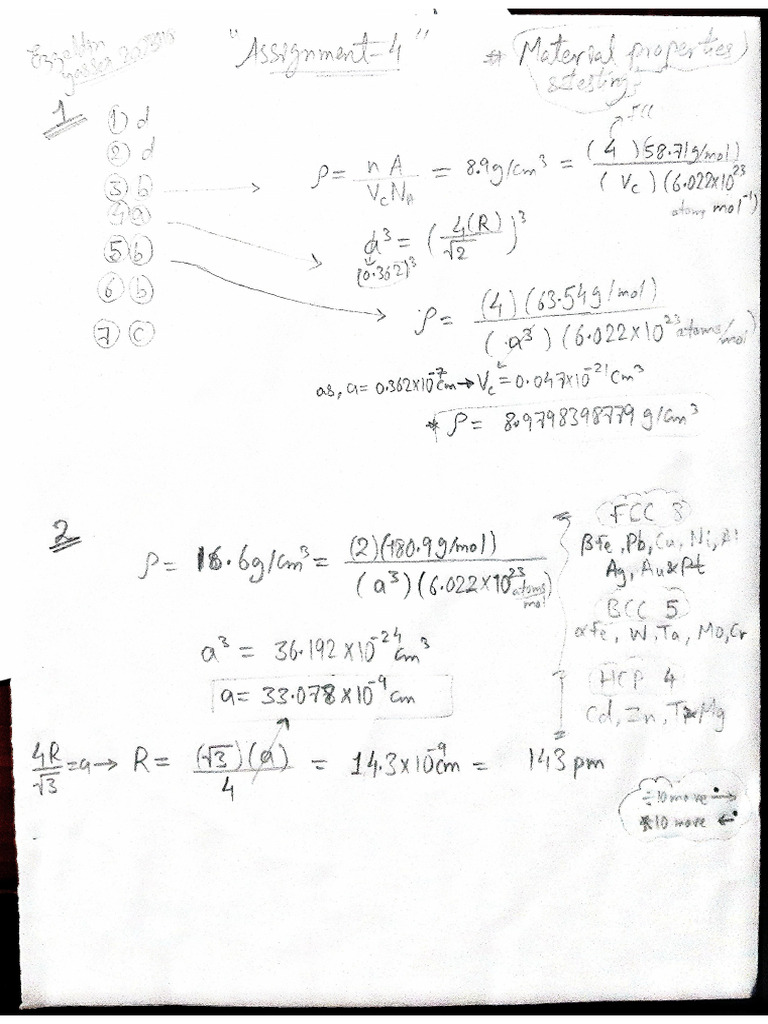 Ezzaldin
yasser
"Assignment-4"
* Material properties
& testing
1
① d
② d
③ b
④ a
⑤ b
⑥ b
⑦ c
FCC
ρ = nA / VcNA = 8.9g/cm³ = (4)(58.71g/mol) / (Vc)(6.022x10²³ atoms mol⁻¹)
a³ = (4(R)/√2)³
(0.362)³
ρ = (4)(63.54g/mol) / (a³)(6.022x10²³ atoms/mol)
as, a=0.362x10⁻⁷cm → Vc=0.047x10⁻²¹cm³
* ρ = 8.9798398779 g/cm³
2
ρ = 16.6g/cm³ = (2)(180.9g/mol) / (a³)(6.022x10²³ atoms/mol)
a³ = 36.192x10⁻²⁴cm³
a = 33.078x10⁻⁹cm
4R/√3 = a → R = (√3)(a) / 4 = 14.3x10⁻⁹cm = 143pm
FCC 8
βfe, Pb, Cu, Ni, Al
Ag, Au & Pt
BCC 5
αfe, W, Ta, Mo, Cr
HCP 4
Cd, Zn, Ti & Mg
÷10 move →
*10 move ←